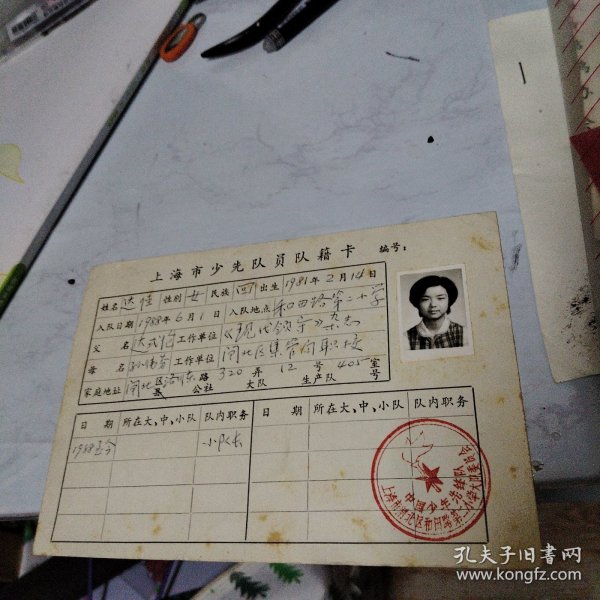 上海市少先队员队籍卡 编号：
姓名 达佳 性别 女 民族 回 出生 1981年2月14日
入队日期 1988年6月1日 入队地点 和田路第二小学
父名 达式 工作单位 《现代领导》杂志
母名 工作单位 闸北区集管局职校
家庭地址 闸北区 县 洛川东 路 公社 320 弄 大队 12 号 生产队 405 室 号
日期 所在大、中、小队 队内职务 日期 所在大、中、小队 队内职务
1988至今 小队长
中国少年先锋队
上海市闸北区和田路第二小学大队委员会
孔夫子旧书网
www.kongfz.com